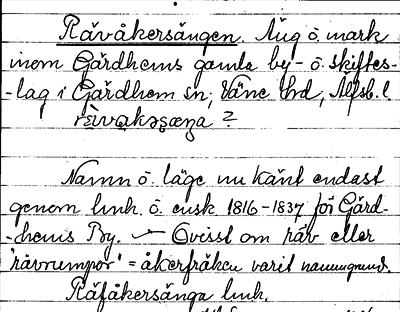 Rävåkersängen. Äng o. mark
inom Gärdhems gamla by- o. skiftes-
-lag i Gärdhem sn, Väne hd, Älfsb. l.
Namn o. läge nu känt endast
genom lmh. o. ensk. 1816-1837 för Gärd-
-hems By. — Ovisst om räv eller
"rävrumpor" = åkerfräken varit namngrund.
Räfåkersänga lmh.